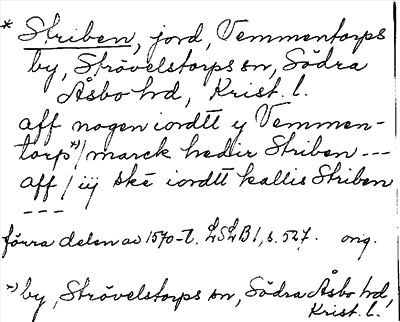 * Striben, jord, Vemmentorps
by, Strövelstorps sn, Södra
Åsbo hd, Krist. l.
aff nogen iordtt y Vemmen-
torp*)/marck hedir Striben ---
aff / iij ske iordtt kallis Striben
---
förra delen av 1570-t. LSLB 1, s. 527. orig.
*) by, Strövelstorps sn, Södra Åsbo hd,
Krist. l.